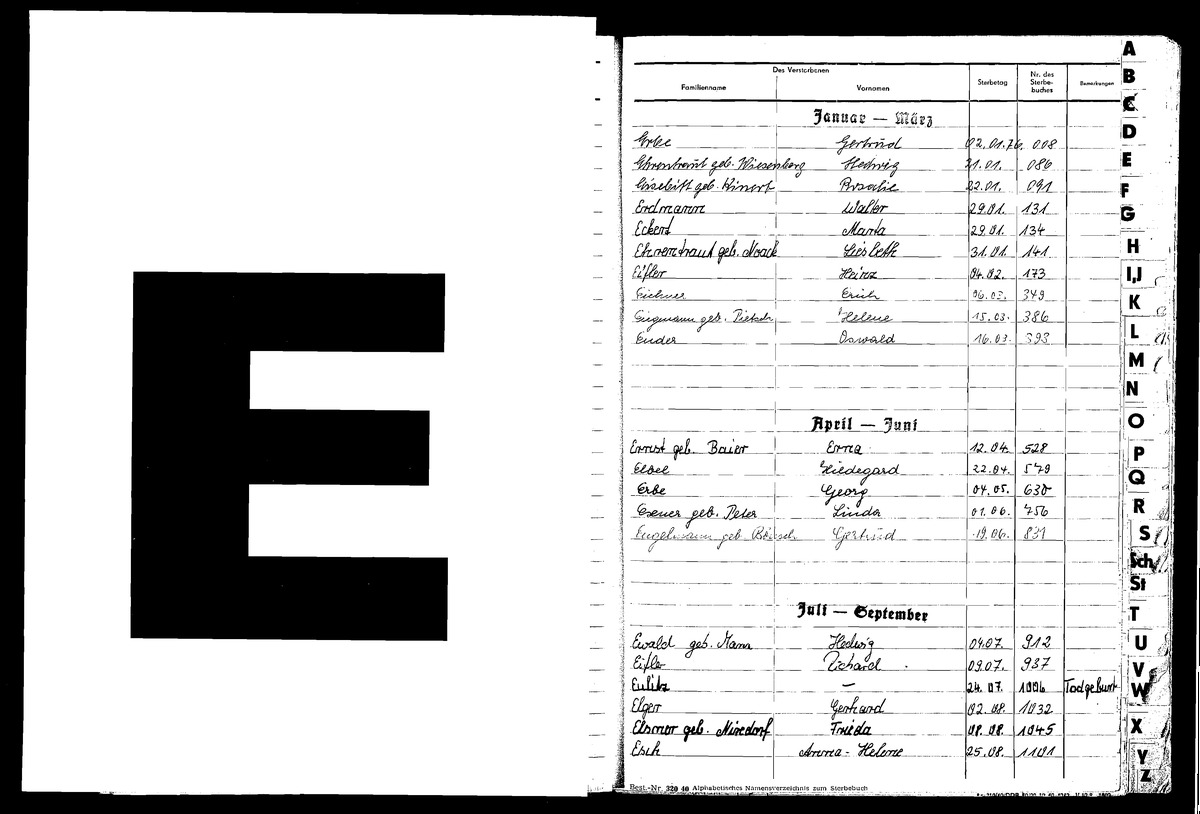 E
Des Verstorbenen
Familienname Vornamen Sterbetag Nr. des Sterbe-buches Bemerkungen
Januar — März
Erbe Gertrud 02.01.76. 008
Ehrentraut geb. Wiesenberg Hedwig 21.01. 086
geb. Rosalie 22.01. 091
Erdmann Walter 29.01. 131
Eckert Marta 29.01. 134
Ehrentraut geb. Noack Liesbeth 31.01. 141
Eifler Heinz 04.02. 173
Eichner Erich 06.03. 349
Engmann geb. Pietsch Helene 15.03. 386
Ender Oswald 16.03. 393
April — Juni
Ernst geb. Baier Erna 12.04. 528
Eibel Hildegard 22.04. 579
Erbe Georg 04.05. 630
Esener geb. Peter Linda 01.06. 756
Engelmann geb. Gertrud 19.06. 831
Juli — September
Ewald geb. Mann Hedwig 04.07. 912
Eifler Richard 09.07. 937
Eulitz — 24.07. 1006 Todgeburt
Elger Gerhard 02.08. 1032
Elsner geb. Nixdorf Frieda 08.08. 1045
Esch Anna-Helene 25.08. 1101
Best.-Nr. 320 40 Alphabetisches Namensverzeichnis zum Sterbebuch
A
B
C
D
E
F
G
H
I,J
K
L
M
N
O
P
Q
R
S
Sch
St
T
U
V
W
X
Y
Z